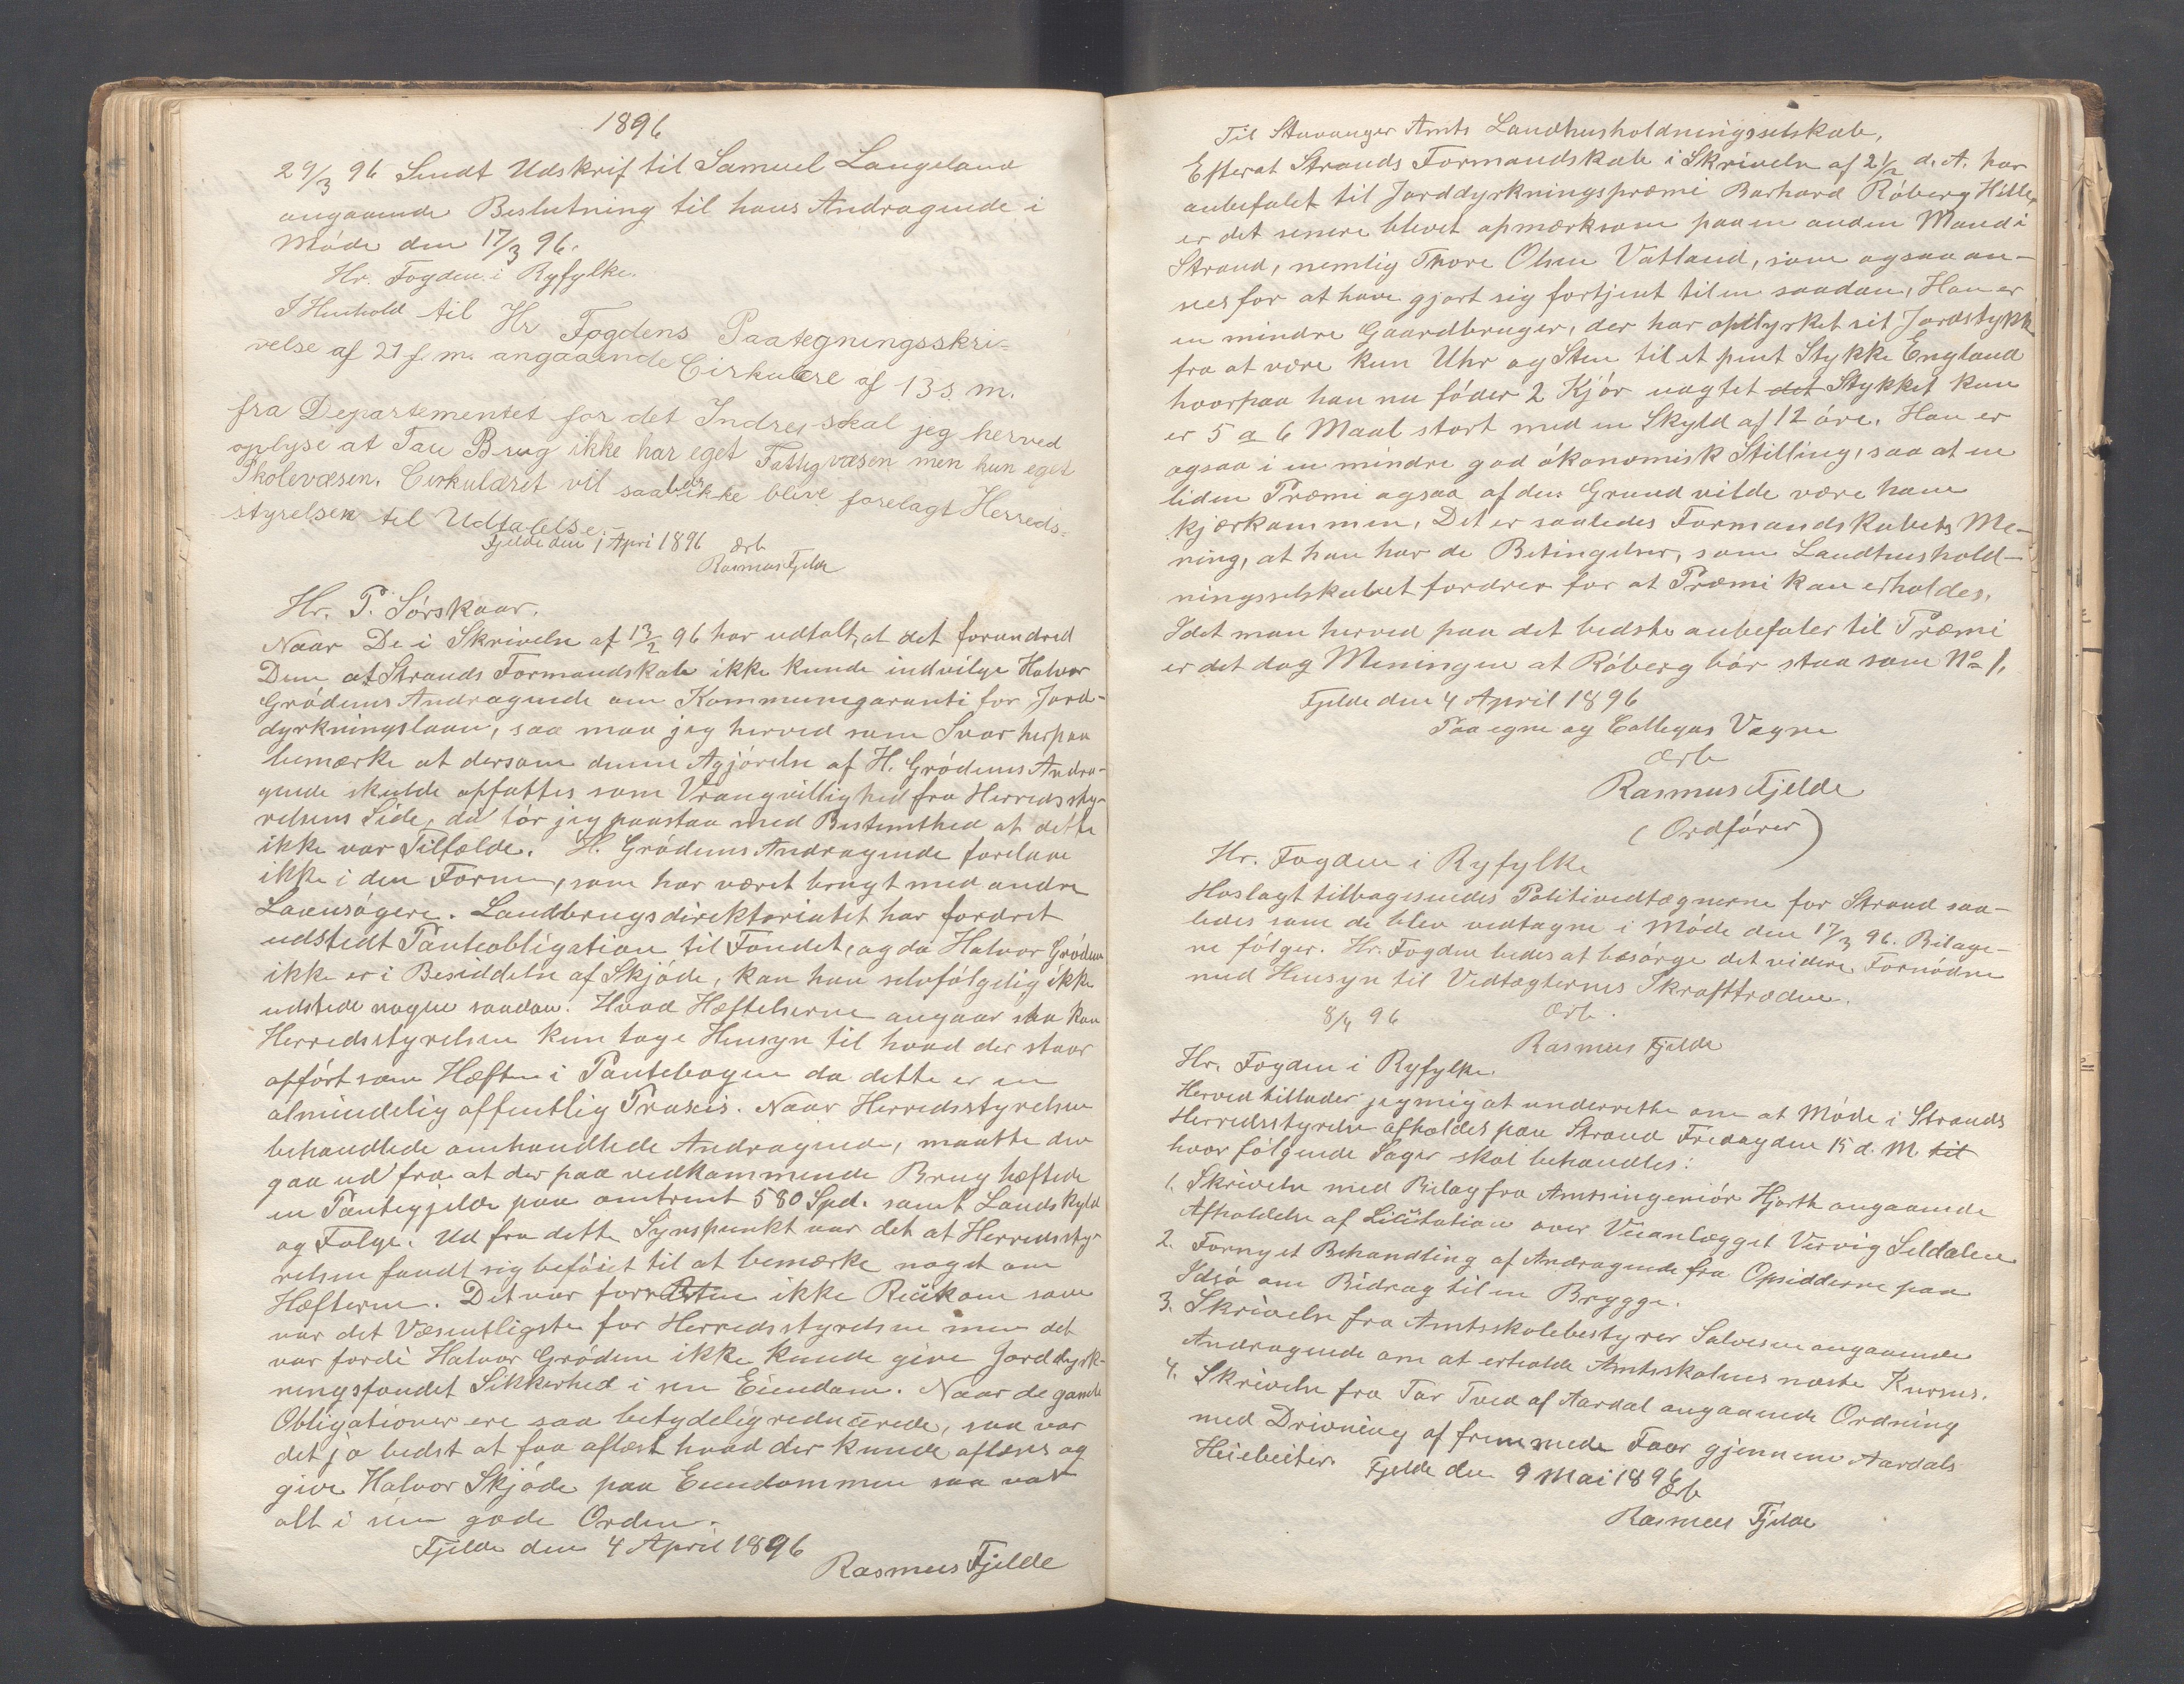 1896
29/3 96 Sendt Udskrif til Samuel Langeland
angaaende Beslutning til hans Andragende i
Møde den 17/3 96.
Hr. Fogden i Ryfylke.
I Henhold til Hr Fogdens Paategningsskri-
velse af 21 f. m. angaaende Cirkulære af 13 s. m.
fra Departementet for det Indre, skal jeg herved
oplyse at Tau Brug ikke har eget Fattigvæsen men kun eget
Skolevæsen. Cirkulæret vil saaledes ikke blive forelagt Herreds-
styrelsen til Udtalelse.
Fjelde den 1 Apri 1896 ærb
Rasmus Fjelde
Hr. P. Sørskaar.
Naar De i Skrivelse af 13/2 96 har udtalt, at det forundred
Dem at Strands Formandskab ikke kunde indvilge Halvor
Grødems Andragende om Kommunegaranti for Jord-
dyrkningslaan, saa maa jeg herved som Svar herpaa
bemærke at dersom denne Afgjørelse af H. Grødems Andra-
gende skulde opfattes som Vrangvillighed fra Herredssty-
relsens Side, da tør jeg paastaa med Bestemthed at dette
ikke var Tilfælde. H. Grødems Andragende forelaae
ikke i den Form, som har været brugt med andre
Laansøgere. Landbrugsdirektoriatet har fordret
udstedt Panteobligation til Fondet, og da Halvor Grødem
ikke er i Besiddelse af Skjøde, kan han selvfølgelig ikke
udstede nogen saadan. Hvad Hæftelserne angaar saa kan
Herredsstyrelsen kun tage Hensyn til hvad der staar
opført som Hæften i Pantebogen da dette er en
almindelig offentlig Praxis. Naar Herredsstyrelsen
behandlede omhandlede Andragende, maatte den
gaa ud fra at der paa vedkommende Brug hæftede
en Pantegjelde paa omtrent 580 Spd. samt Landskyld
og Følge. Ud fra dette Synspunkt var det at Herredssty-
relsen fandt sig beføiet til at bemærke noget om
Hæfterne. Det var forresten ikke Risikoen som
var det Væsentligste for Herredsstyrelsen men det
var fordi Halvor Grødem ikke kunde give Jorddyrk-
ningsfondet Sikkerhed i sin Eiendom. Naar de gamle
Obligationer ere saa betydelig reducerede, saa var
det jo bedst at faa aflæst hvad der kunde aflæses og
give Halvor Skjøde paa Eiendommen saa var
alt i sin gode Orden.
Fjelde den 4 April 1896
Rasmus Fjelde
Til Stavanger Amts Landhusholdningsselskab,
Efterat Strands Formandskab i Skrivelse af 21/2 d. A. har
anbefalet til Jorddyrkningspræmi Barhard Røberg Hille,
er det senere blevet opmærksom paa en anden Mand i
Strand, nemlig Thore Olsen Vatland, som ogsaa an-
sees for at have gjort sig fortjent til en saadan. Han er
en mindre Gaardbruger, der har opdyrket sit Jordstykke
fra at være kun Uhr og Sten til et pent Stykke England
hvorpaa han nu føder 2 Kjør uagtet det Stykket kun
er 5 a 6 Maal stort med en Skyld af 12 øre. Han er
ogsaa i en mindre god økonomisk Stilling, saa at en
liden Præmi ogsaa af den Grund vilde være ham
kjærkommen. Det er saaledes Formandskabets Me-
ning, at han har de Betingelser, som Landhushold-
ningsselskabet fordrer for at Præmi kan erholdes.
Idet man herved paa det bedste anbefaler til Præmi
er det dog Meningen at Røberg bør staa som No 1.
Fjelde den 4 April 1896
Paa egne og Collegas Vegne
Ærb
Rasmus Fjelde
(Ordfører)
Hr. Fogden i Ryfylke
Hoslagt tilbagesendes Politivedtægterne for Strand saa-
ledes som de blev vedtagne i Møde den 17/3 96. Bilage-
ne følger. Hr. Fogden bedes at besørge det videre Fornødne
med Hensyn til Vedtægternes Ikrafttræden.
8/4 96 Ærb.
Rasmus Fjelde
Hr. Fogden i Ryfylke.
Herved tillader jeg mig at underrette om at Møde i Strands
Herredsstyrelse afholdes paa Strand Fredag den 15 d. M. til
hvor følgende Sager skal behandles:
1. Skrivelse med Bilag fra Amtsingeniør Hjorth angaaende
Afholdelse af Licitation over Veianlægget Vervig Seldalen
2. Fornyet Behandling af Andragende fra Opsidderne paa
Idsø om Bidrag til en Brygge.
3. Skrivelse fra Amtsskolebestyrer Salvesen angaaende
Andragende om at erholde Amtsskolens næste Kursus.
4. Skrivelse fra Tor Tved af Aardal angaaende Ordning
med Drivning af fremmede Faar gjennem Aardals
Heiebeiter.
Fjelde den 9 Mai 1896
Ærb
Rasmus Fjelde